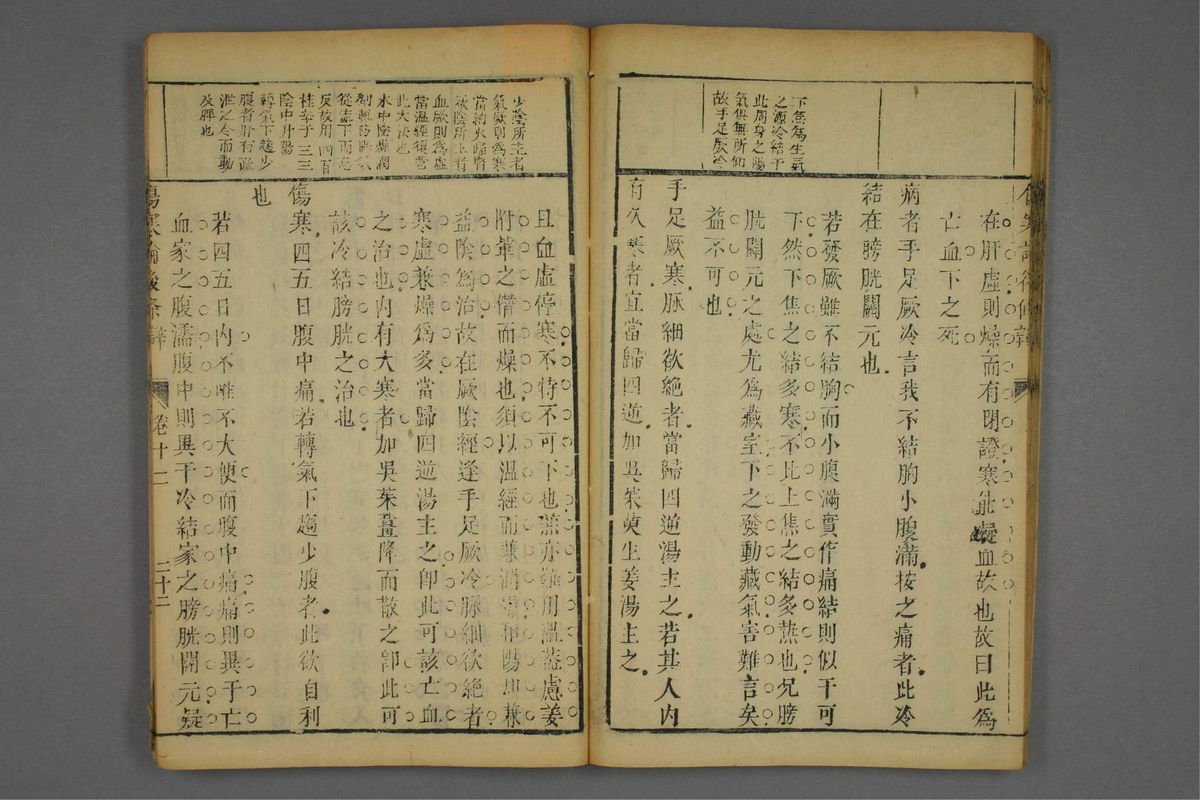 下焦為生氣
之源冷結于
此周身之陽
氣俱無所仰
故手足厥冷
在肝虛則燥而有閉證寒能凝血故也故曰此為
亡血下之死
病者手足厥冷言我不結胸小腹滿按之痛者此冷
結在膀胱關元也
若發厥雖不結胸而小腹滿實作痛結則似干可
下然下焦之結多寒不比上焦之結多熱也况膀
胱關元之處尤為藏室下之發動藏氣害難言矣
益不可也
手足厥寒脉細欲絶者當歸四逆湯主之若其人內
有久寒者宜當歸四逆加吳茱萸生姜湯主之
少陰所主者
氣厥則為寒
當納火歸腎
厥陰所主者
血厥則為虛
當溫經復營
此大法也
桂辛于
陰中升陽
轉氣下趨少
腹者肝有疏
泄之令而動
及脾也
且血虛停寒不特不可下也並亦難用溫蓋慮姜
附輩之僣而燥也須以温經而兼潤燥和陽即兼
益陰為治故在厥陰經逢手足厥冷脉細欲絶者
寒虛兼燥為多當歸四逆湯主之卽此可該亡血
之治也內有大寒者加吳茱薑降而散之卽此可
該冷結膀胱之治也
傷寒四五日腹中痛若轉氣下趨少腹者此欲自利
也
若四五日內不唯不大便而腹中痛痛則異于亡
血家之腹濡腹中則異于冷結家之膀胱關元疑
傷寒論後條辯
卷十一
二十二